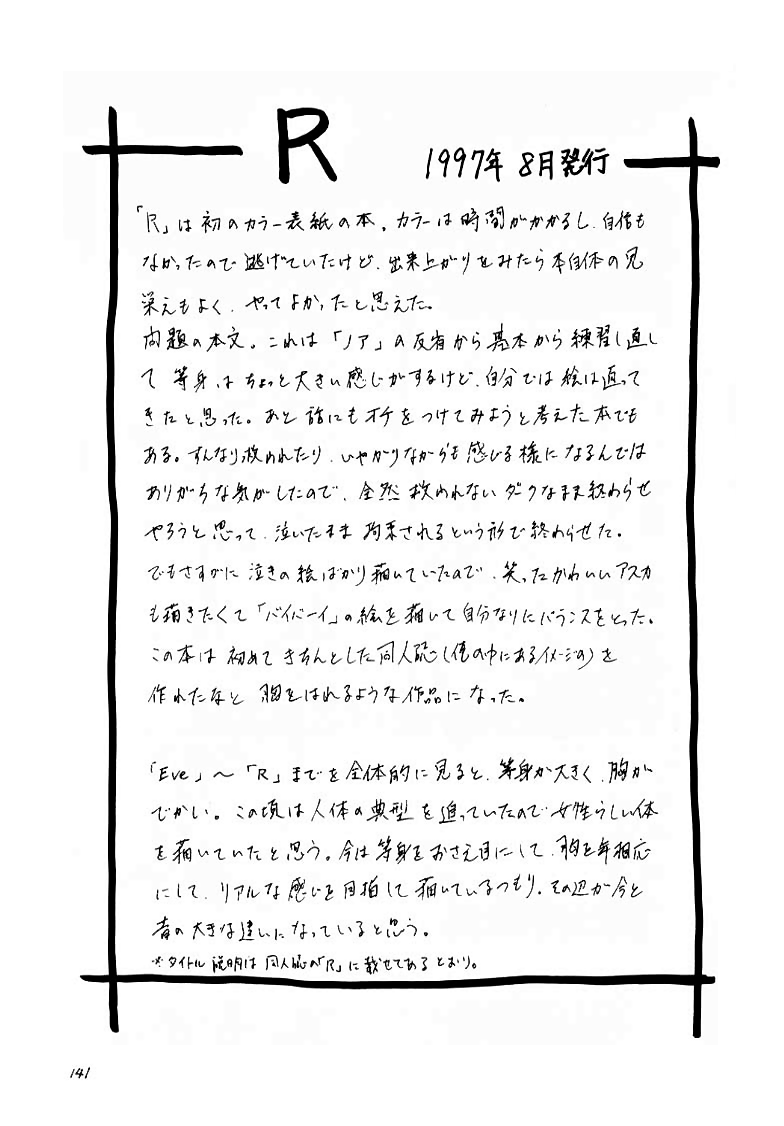 R
1997年 8月発行
「R」は初のカラー表紙の本。カラーは時間がかかるし、自信も
なかったので逃げていたけど、出来上がりをみたら本自体の見
栄えもよく、やってよかったと思えた。
問題の本文。これは「ノア」の反省から基本から練習し直し
て 等身はちょっと大きい感じがするけど、自分では絵は直って
きたと思った。あと話にもオチをつけてみようと考えた本でも
ある。すんなり救われたり、いやがりながらも感じる様になるんでは
ありがちな気がしたので、全然救われないダークなまま終わらせ
やろうと思って、泣いたまま 拘束されるという形で終わらせた。
でもさすがに泣きの絵ばかり描いていたので、笑ったかわいいアスカ
も描きたくて「バイバーイ」の絵を描いて自分なりにバランスをとった。
この本は初めてきちんとした同人誌(俺の中にあるイメージの)を
作れたなと 胸をはれるような作品になった。
「Eve」〜「R」までを全体的に見ると、等身が大きく、胸が
でかい。この頃は人体の典型を追っていたので女性らしい体
を描いていたと思う。今は等身をおさえ目にして、胸を年相応
にして、リアルな感じを目指して描いているつもり。その辺が今と
昔の大きな違いになっていると思う。
※タイトル説明は同人誌の「R」に載せてあるとおり。
141